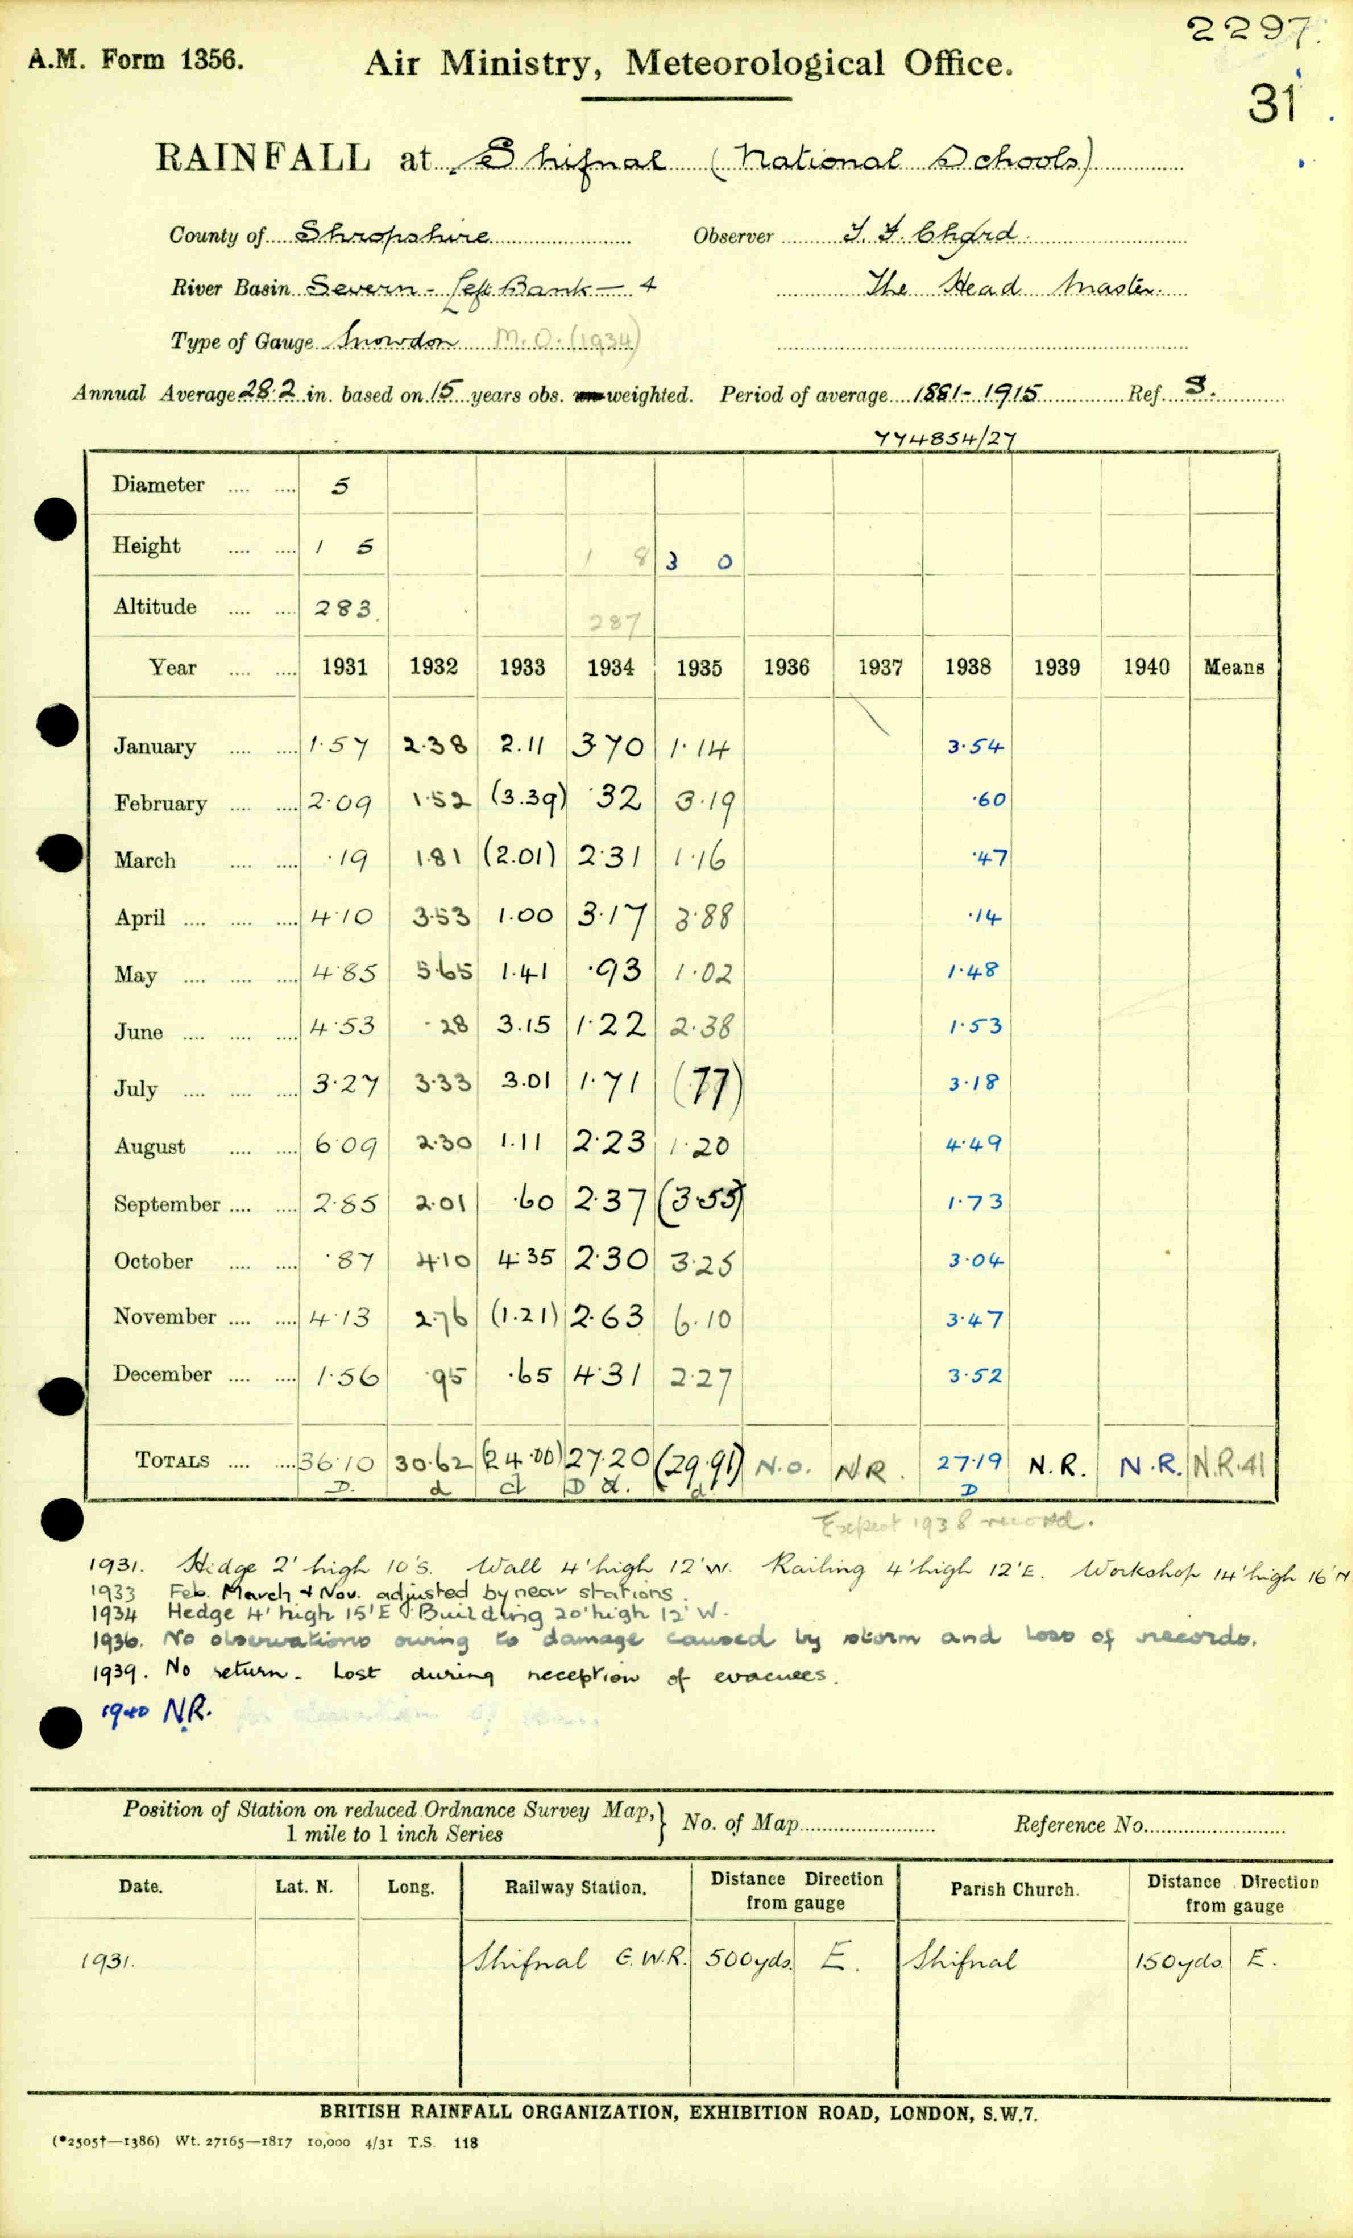 2297.
A.M. Form 1356.
Air Ministry, Meteorological Office.
31
RAINFALL at Shifnal (National Schools)
County of Shropshire Observer
River Basin Severn - Left Bank - 4 The Head Master.
Type of Gauge Snowdon M.O. (1934)
Annual Average 28.2 in. based on 15 years obs. weighted. Period of average 1881-1915 Ref. S.
774854/27
Diameter 5
Height 1 5 1 8 3 0
Altitude 283. 287
Year 1931 1932 1933 1934 1935 1936 1937 1938 1939 1940 Means
January 1.57 2.38 2.11 3.70 1.14 3.54
February 2.09 1.52 (3.39) .32 3.19 .60
March .19 1.81 (2.01) 2.31 1.16 .47
April 4.10 3.53 1.00 3.17 3.88 .14
May 4.85 5.65 1.41 .93 1.02 1.48
June 4.53 .28 3.15 1.22 2.38 1.53
July 3.27 3.33 3.01 1.71 (77) 3.18
August 6.09 2.30 1.11 2.23 1.20 4.49
September 2.85 2.01 .60 2.37 (3.55) 1.73
October .87 4.10 4.35 2.30 3.25 3.04
November 4.13 2.76 (1.21) 2.63 6.10 3.47
December 1.56 .95 .65 4.31 2.27 3.52
TOTALS 36.10 30.62 (24.00) 27.20 (29.91) N.O. N.R. 27.19 N.R. N.R. N.R. 41
D. d d D d. d D
Expect 1938 record.
1931. Hedge 2' high 10'S. Wall 4' high 12'W. Railing 4' high 12'E. Workshop 14' high 16'N
1933 Feb. March & Nov. adjusted by near stations.
1934 Hedge 4' high 15'E & Building 20' high 12'W.
1936. No observations owing to damage caused by storm and loss of records.
1939. No return. Lost during reception of evacuees.
1940 N.R.
Position of Station on reduced Ordnance Survey Map, 1 mile to 1 inch Series } No. of Map Reference No.
Date. Lat. N. Long. Railway Station. Distance Direction from gauge Parish Church. Distance Direction from gauge
1931. Shifnal G.W.R. 500yds. E. Shifnal 150yds. E.
BRITISH RAINFALL ORGANIZATION, EXHIBITION ROAD, LONDON, S.W.7.
(*2505†—1386) Wt. 27165—1817 10,000 4/31 T.S. 118